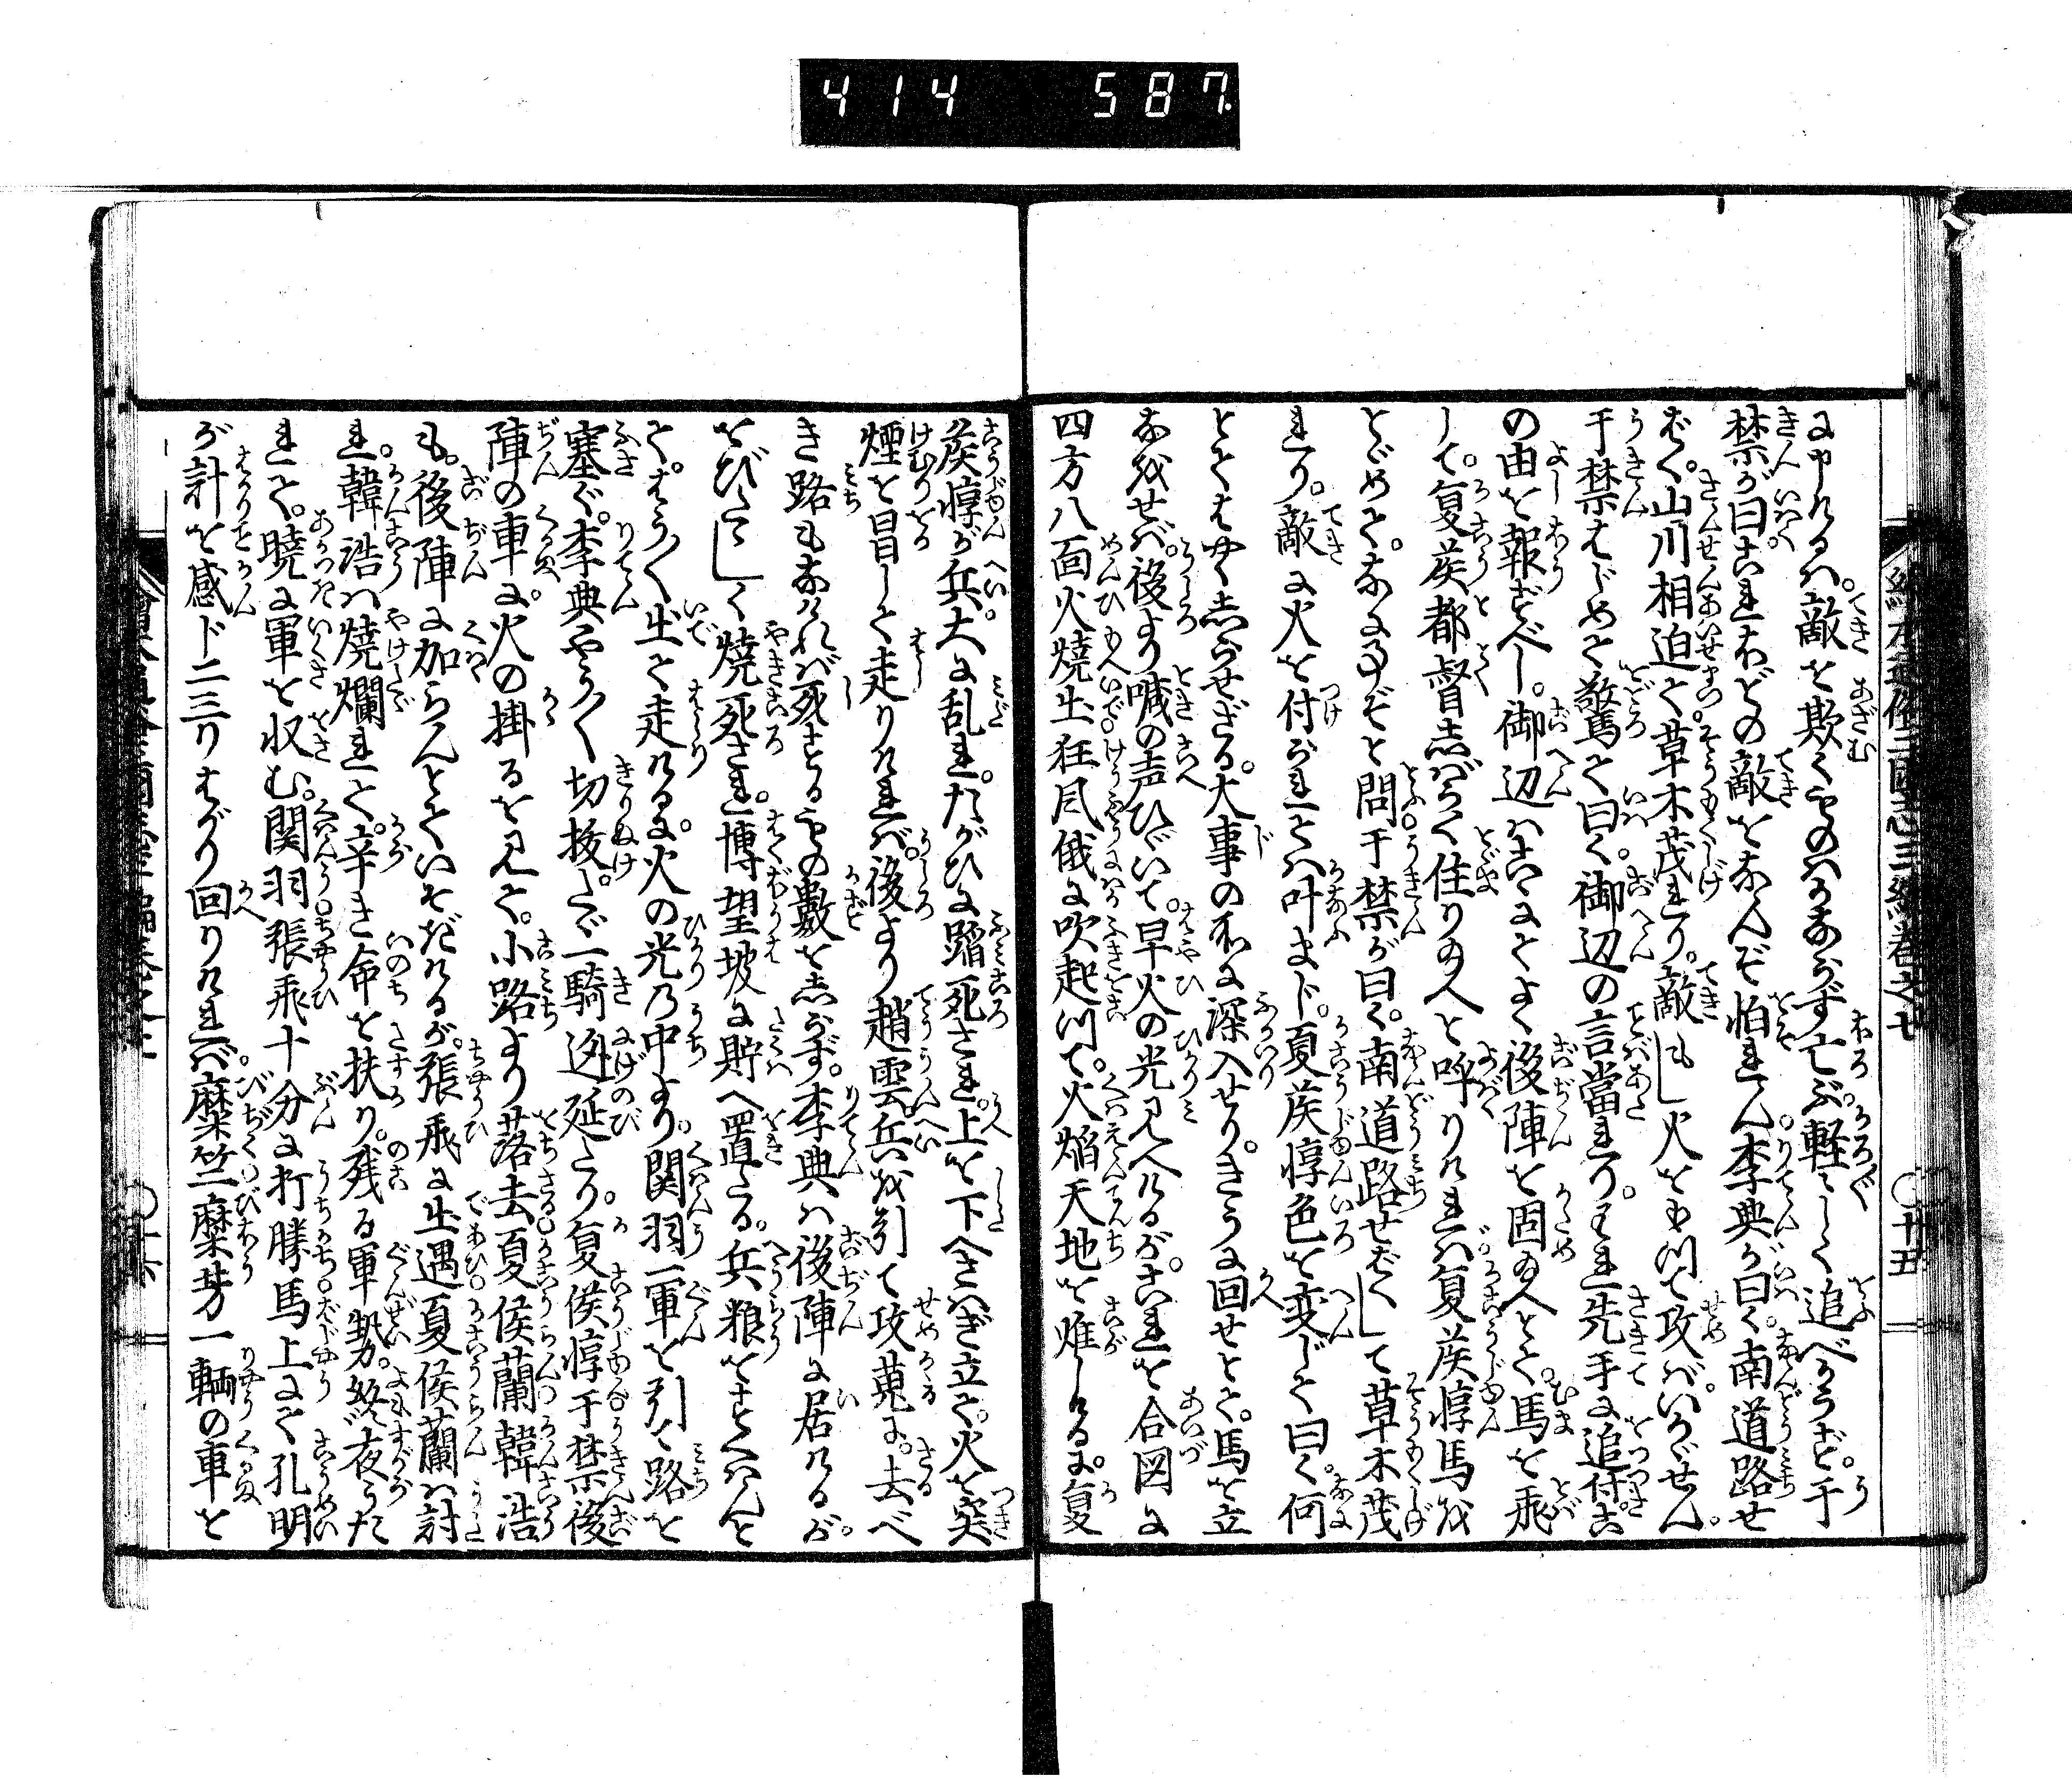 414 587
繪本通俗三國志三編巻之七
〇廿五
に申けるハ。敵を欺くものハかならず亡ぶ。軽〻しく追べからず。于
禁が曰。これほどの敵をなんぞ怕れん。李典が曰く。南道路せ
ばく。山川相迫て草木茂れり。敵もし火をもつて攻バ。いかゞせん。
于禁はじめて驚て曰く。御辺の言當れり。われ先手に追付。こ
の由を報ずべし。御辺ハこゝにてよく後陣を固め玉へとて。馬を飛
して。夏侯都督しばらく住り玉へと呼りけれバ夏侯惇馬を
とゞめて。なに事ぞと問。于禁が曰く。南道路せばくして草木茂
れり。敵に火を付られてハ叶まじ。夏侯惇色を変じて曰く。何
とてはやくしらせざる。大事の所に深入せり。きうに回せとて。馬を立
なをせバ。後より喊の声ひゞいて。早火の光見へけるが。これを合図に
四方八面火焼出狂風俄に吹起つて。火焔天地を焦しけるに。夏
侯惇が兵大に乱れ。たがひに踏死され。上を下へさハぎ立て。火を突
煙を冒して走りけれバ。後より趙雲兵を引て攻蒐に。去べ
き路もなけれバ死するもの数をしらず。李典ハ後陣に居けるが。
をびたゝしく焼死され。博望坡に貯へ置たる。兵粮をすくハんと
て。はう〳〵出て走けるに。火の光の中より。関羽一軍を引て路を
塞ぐ。李典やう〳〵切抜。たゞ一騎逃延たり。夏侯惇于禁後
陣の車に。火の掛るを見て。小路より落去夏侯蘭韓浩
も。後陣に加らんとていそぎけるが。張飛に出遇夏侯蘭ハ討
れ。韓浩ハ焼爛れて。辛き命を扶り。残る軍勢。終夜うた
れて。暁に軍を収む。関羽張飛十分に打勝馬上にて孔明
が計を感ド二三リはかり回りけれバ。麋竺麋芳一輌の車を